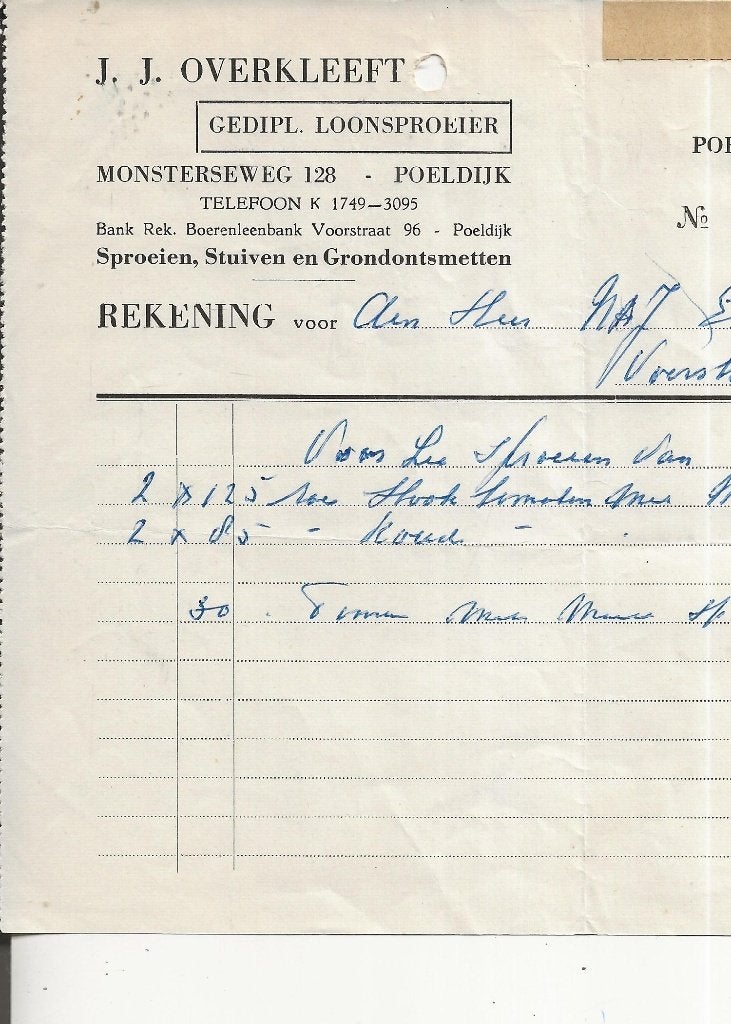 J. J. OVERKLEEFT
GEDIPL. LOONSPROEIER
MONSTERSEWEG 128 - POELDIJK
TELEFOON K 1749—3095
Bank Rek. Boerenleenbank Voorstraat 96 - Poeldijk
Sproeien, Stuiven en Grondontsmetten
POE
No
REKENING voor den Heer
Voorst
Voor het sproeien van
2 x 125 roe Stook tomaten met
2 x 85 - Koud -
30